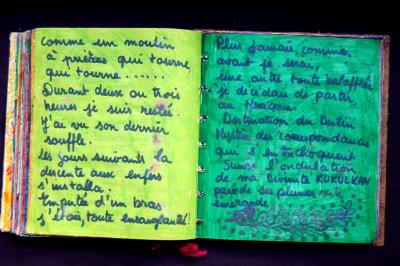 comme un moulin
à prières qui tourne,
qui tourne......
Durant deux ou trois
heures je suis restée.
J'ai vu son dernier
souffle.
Les jours suivants la
descente aux enfers
s'installa.
Amputée d'un bras
j'étais, toute ensanglantée!
Plus jamais comme
avant je serai,
une autre toute balafrée
je décidais de partir
au Mexique.
Destination du Destin
Mystère des correspondances
qui s'entrechoquent
Suivre l'ondulation
de ma Divinité KUKULKAN
parée de ses plumes
emeraude